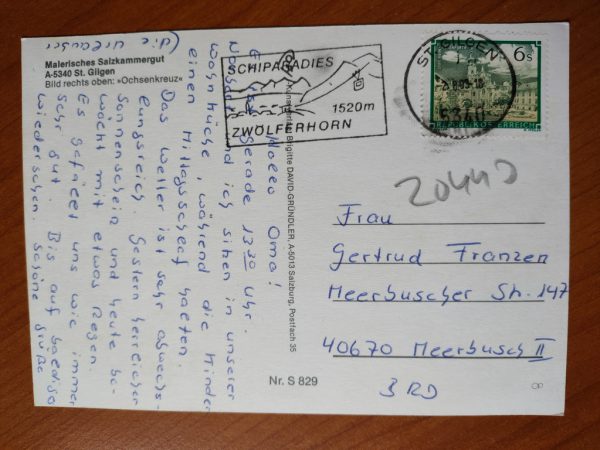 Malerisches Salzkammergut
A-5340 St. Gilgen
Bild rechts oben: «Ochsenkreuz»
SCHIPARADIES
1520m
ZWÖLFERHORN
ST. GILGEN
5340
6 S
REPUBLIK ÖSTERREICH
Hallo Oma!
Es ist gerade 13 30 Uhr.
und ich sitzen in unserer
Wohnküche, während die Kinder
einen Mittagsschlaf halten.
Das Wetter ist sehr abwechs-
lungsreich. Gestern herrlicher
Sonnenschein und heute be-
wölkt mit etwas Regen.
Es gefällt uns wie immer
sehr gut. Bis auf baldiges
Wiedersehen. Schöne Grüße
(die Urlauber
Kunstverlag Brigitte DAVID-GRÜNDLER, A-5013 Salzburg, Postfach 35
20440
Frau
Gertrud Franzen
Meerbuscher Str. 147
40670 Meerbusch II
BRD
Nr. S 829